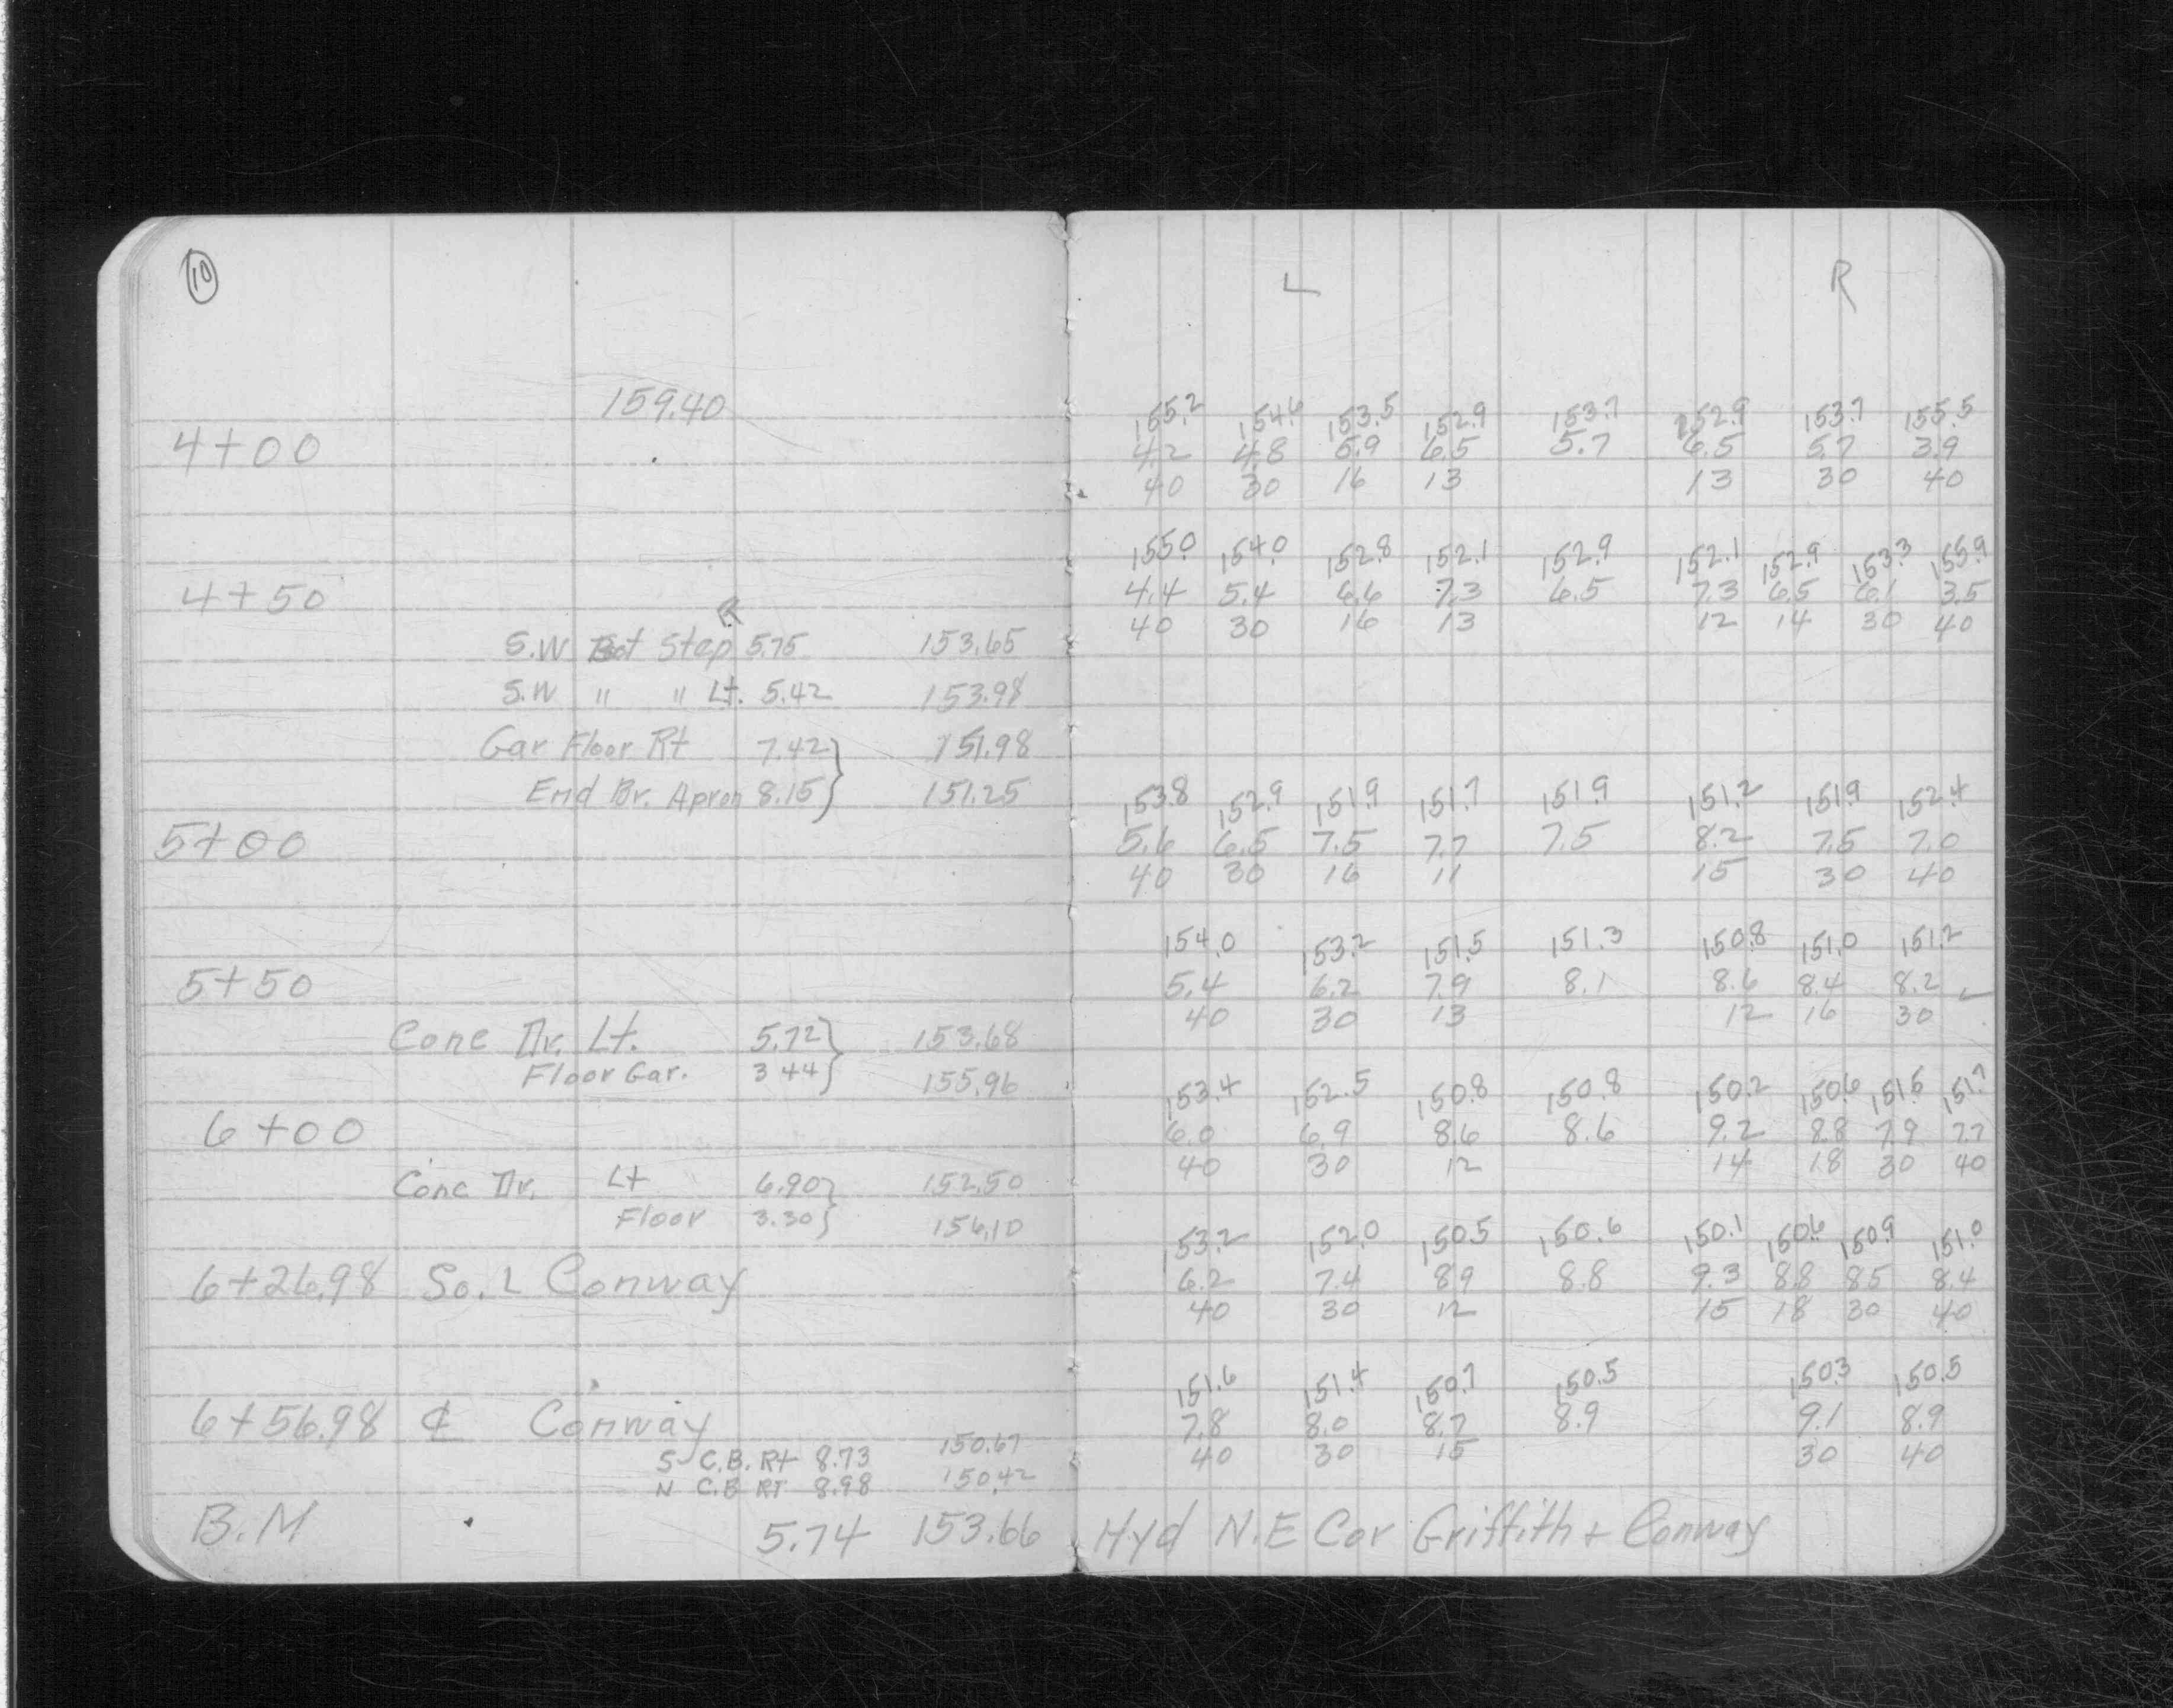 10
L R
159.40
155.2 154.6 153.5 152.9 153.7 152.9 153.7 155.5
4+00 4.2 4.8 5.9 6.5 5.7 6.5 5.7 3.9
40 30 16 13 13 30 40
155.0 154.0 152.8 152.1 152.9 152.1 152.9 153.3 155.9
4+50 4.4 5.4 6.6 7.3 6.5 7.3 6.5 6.1 3.5
R 40 30 16 13 12 14 30 40
S.W Bot Step 5.75 153.65
S.W " " Lt. 5.42 153.98
Gar Floor Rt 7.42} 151.98
End Br. Apron 8.15} 151.25
153.8 152.9 151.9 151.7 151.9 151.2 151.9 152.4
5+00 5.6 6.5 7.5 7.7 7.5 8.2 7.5 7.0
40 30 16 11 15 30 40
154.0 153.2 151.5 151.3 150.8 151.0 151.2
5+50 5.4 6.2 7.9 8.1 8.6 8.4 8.2
40 30 13 12 16 30
Conc Dr. Lt. 5.72} 153.68
Floor Gar. 3 44} 155.96
153.4 152.5 150.8 150.8 150.2 150.6 151.5 151.7
6+00 6.0 6.9 8.6 8.6 9.2 8.8 7.9 7.7
40 30 12 14 18 30 40
Conc Dr. Lt 6.90} 152.50
Floor 3.30} 156.10
153.2 152.0 150.5 150.6 150.1 150.6 150.9 151.0
6+26.98 So. L Conway 6.2 7.4 8.9 8.8 9.3 8.8 8.5 8.4
40 30 12 15 18 30 40
151.6 151.4 150.7 150.5 150.3 150.5
6+56.98 ℄ Conway 7.8 8.0 8.7 8.9 9.1 8.9
40 30 15 30 40
S C.B. Rt 8.73 150.67
N C.B RT 8.98 150.42
B.M 5.74 153.66 Hyd N.E Cor Griffith + Conway